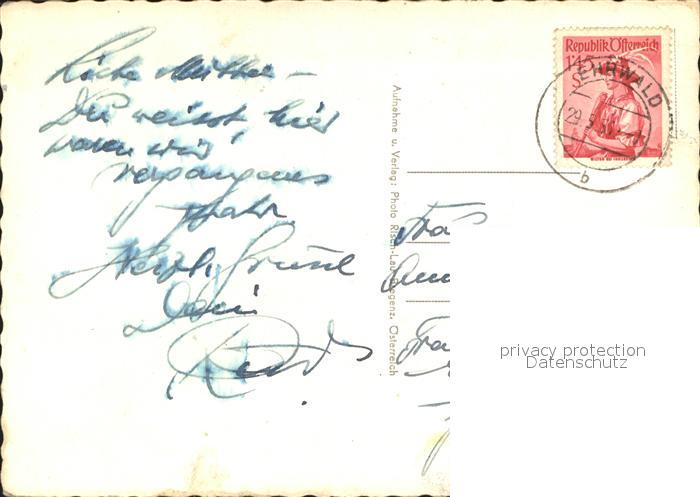 Liebe Mutter –
Du weisst hier
waren wir
vergangenes
Jahr
Herzl. Grüsse
Dein
Aufnahme u. Verlag: Photo Risch-Lau, Bregenz, Österreich
Republik Österreich
EHRWALD
b
Frau
privacy protection
Datenschutz